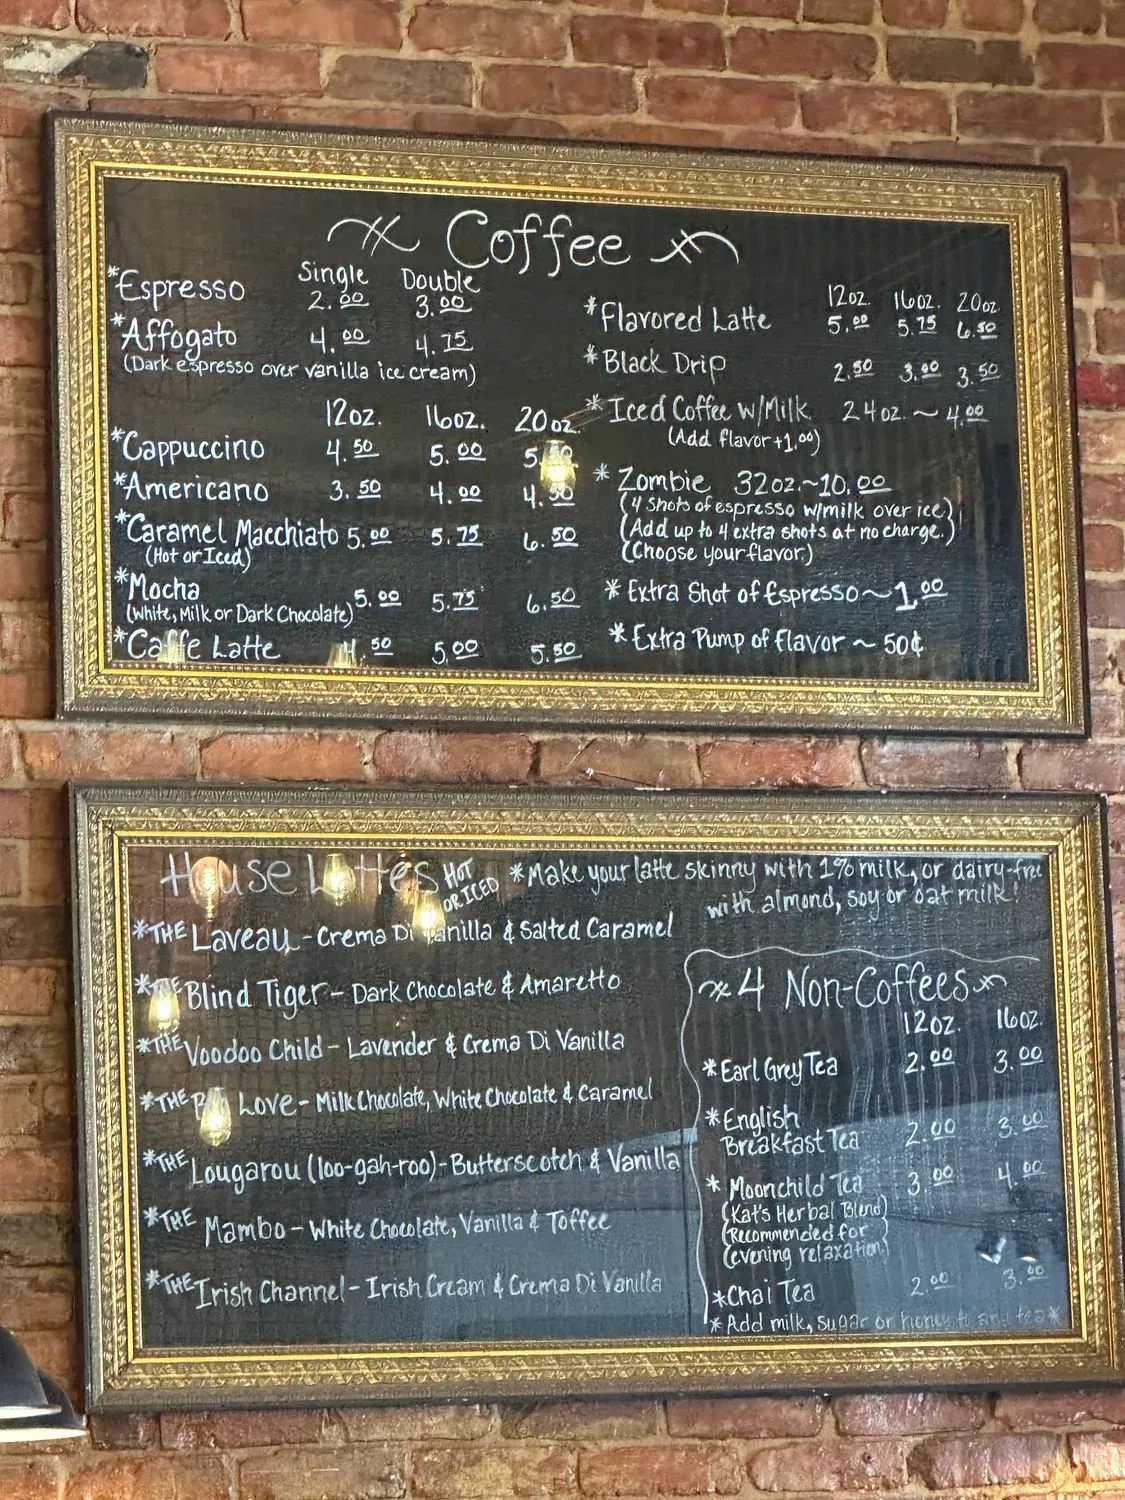 Coffee
Single Double
*Espresso 2.00 3.00
*Affogato 4.00 4.75
(Dark espresso over vanilla ice cream)
12oz. 16oz. 20oz.
*Cappuccino 4.50 5.00 5.50
*Americano 3.50 4.00 4.50
*Caramel Macchiato 5.00 5.75 6.50
(Hot or Iced)
*Mocha 5.00 5.75 6.50
(White, Milk or Dark Chocolate)
*Caffe Latte 4.50 5.00 5.50
12oz. 16oz. 20oz
*Flavored Latte 5.00 5.75 6.50
*Black Drip 2.50 3.00 3.50
*Iced Coffee w/Milk 24oz. ~ 4.00
(Add flavor +1.00)
*Zombie 32oz.~10.00
(4 shots of espresso w/milk over ice)
(Add up to 4 extra shots at no charge.)
(Choose your flavor)
*Extra Shot of Espresso~1.00
*Extra Pump of flavor ~ 50¢
House Lattes HOT
OR ICED
*THE Laveau - Crema Di Vanilla & Salted Caramel
*THE Blind Tiger - Dark Chocolate & Amaretto
*THE Voodoo Child - Lavender & Crema Di Vanilla
*THE Love - Milk Chocolate, White Chocolate & Caramel
*THE Lougarou (loo-gah-roo)-Butterscotch & Vanilla
*THE Mambo - White Chocolate, Vanilla & Toffee
*THE Irish Channel - Irish Cream & Crema Di Vanilla
*Make your latte skinny with 1% milk, or dairy-free
with almond, soy or oat milk!
4 Non-Coffees
12oz. 16oz.
*Earl Grey Tea 2.00 3.00
*English
Breakfast Tea 2.00 3.00
*Moonchild Tea 3.00 4.00
(Kat's Herbal Blend)
(Recommended for)
(evening relaxation)
*Chai Tea 2.00 3.00
*Add milk, sugar or honey to any tea*